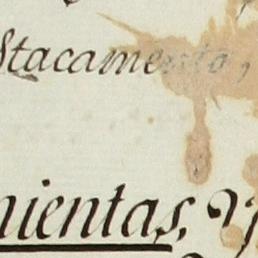 stacamento,
mientas, y